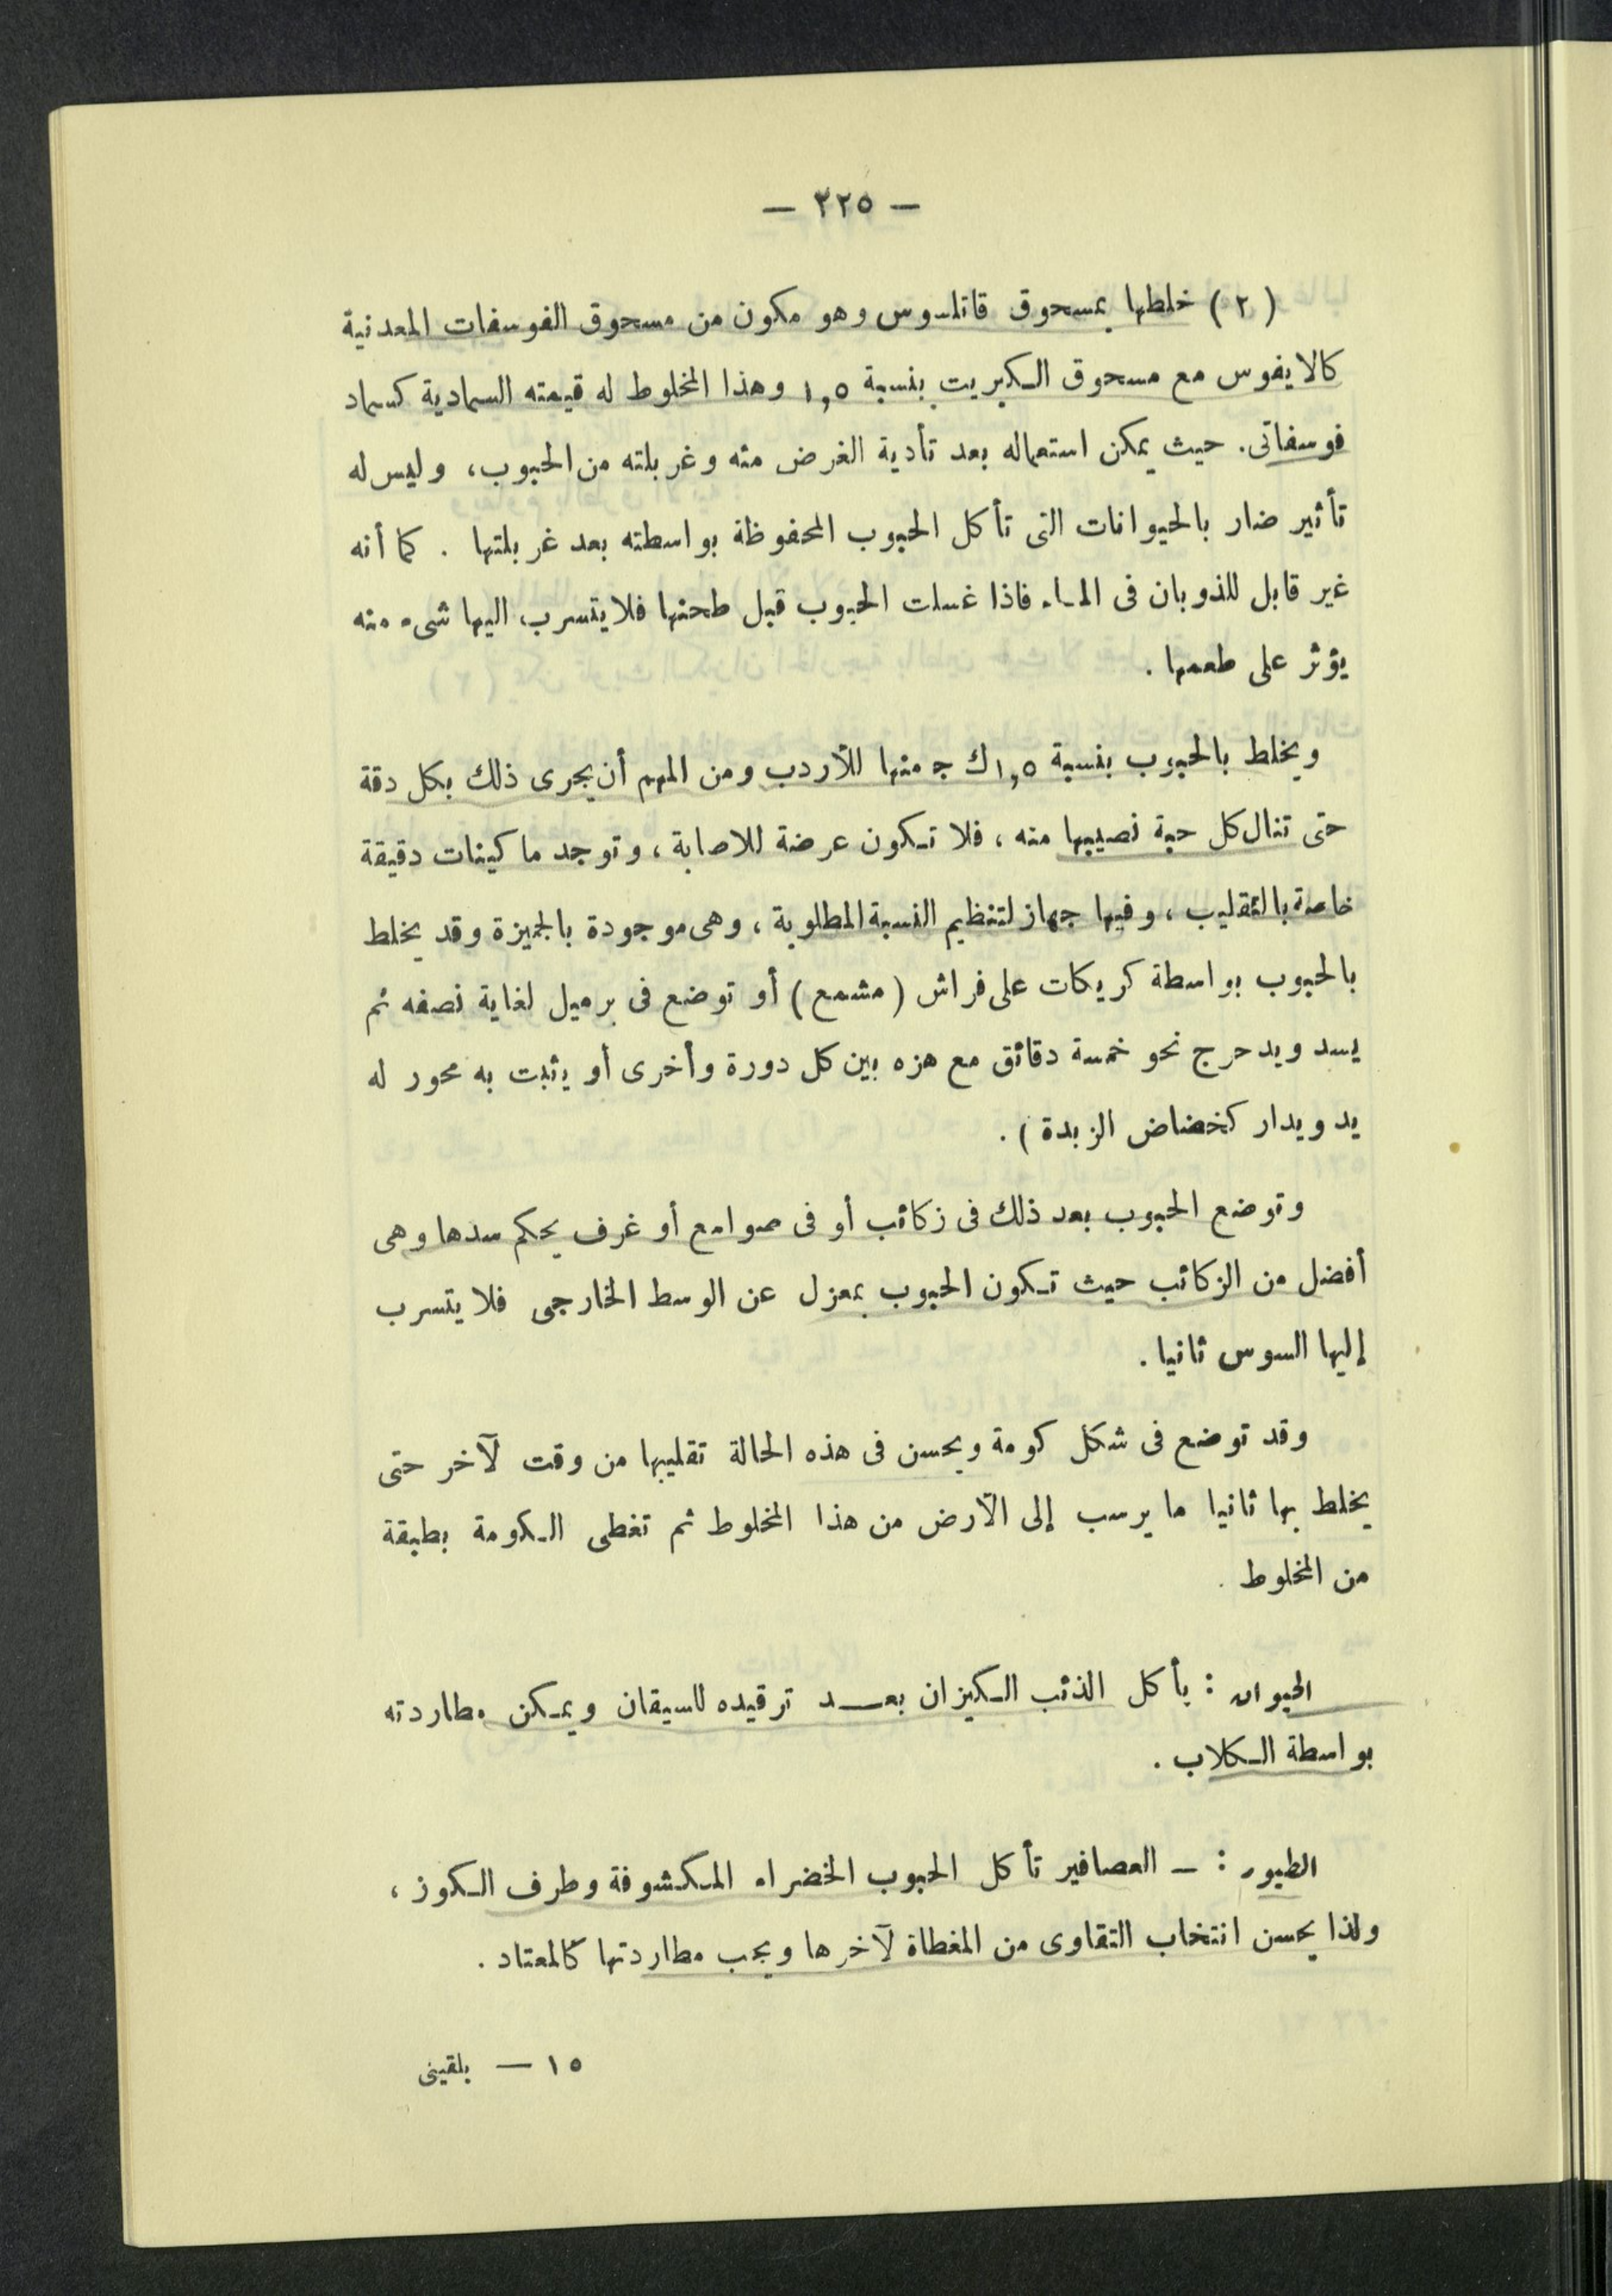 — ٢٢٥ —
(٢) خلطها بمسحوق قاتلسوس وهو مكون من مسحوق الفوسفات المعدنية
كالايفوس مع مسحوق الكبريت بنسبة ١,٥ وهذا المخلوط له قيمته السمادية كسماد
فوسفاتى. حيث يمكن استعماله بعد تأدية الغرض منه وغربلته من الحبوب، وليس له
تأثير ضار بالحيوانات التى تأكل الحبوب المحفوظة بواسطته بعد غربلتها . كما أنه
غير قابل للذوبان فى الماء فاذا غسلت الحبوب قبل طحنها فلا يتسرب اليها شىء منه
يؤثر على طعمها .
ويخلط بالحبوب بنسبة ١,٥ ك ج منها للأردب ومن المهم أن يجرى ذلك بكل دقة
حتى تنال كل حبة نصيبها منه ، فلا تكون عرضة للاصابة ، وتوجد ماكينات دقيقة
خاصة بالتقليب ، وفيها جهاز لتنظيم النسبة المطلوبة ، وهى موجودة بالجيزة وقد يخلط
بالحبوب بواسطة كريكات على فراش (مشمع) أو توضع فى برميل لغاية نصفه ثم
يسد ويدحرج نحو خمسة دقائق مع هزه بين كل دورة وأخرى أو يثبت به محور له
يد ويدار كخضاض الزبدة ) .
وتوضع الحبوب بعد ذلك فى زكائب أو فى صوامع أو غرف يحكم سدها وهى
أفضل من الزكائب حيث تكون الحبوب بمعزل عن الوسط الخارجى فلا يتسرب
إليها السوس ثانيا .
وقد توضع فى شكل كومة ويحسن فى هذه الحالة تقليبها من وقت لآخر حتى
يخلط بها ثانيا ما يرسب إلى الأرض من هذا المخلوط ثم تغطى الكومة بطبقة
من المخلوط .
الحيوان : يأكل الذئب الكيزان بعد ترقيده للسيقان ويمكن مطاردته
بواسطة الكلاب .
الطيور : — العصافير تأكل الحبوب الخضراء المكشوفة وطرف الكوز ،
ولذا يحسن انتخاب التقاوى من المغطاة لآخرها ويجب مطاردتها كالمعتاد .
١٥ — بلقينى